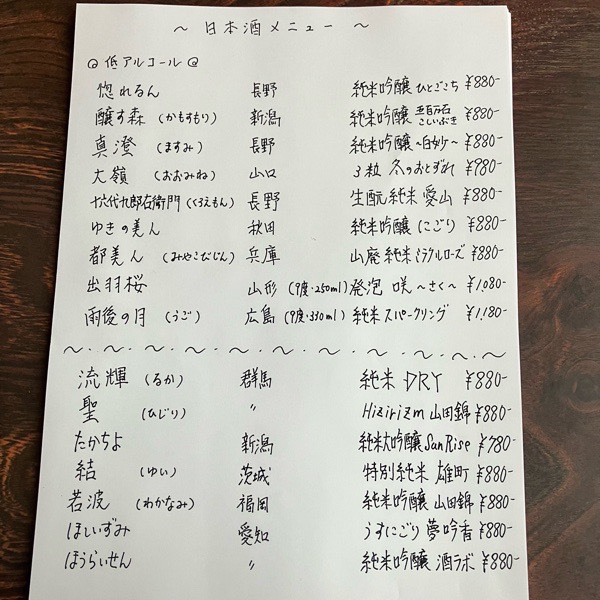 ～ 日本酒メニュー ～
◎ 低アルコール ◎
惣れるん 長野 純米吟醸 ひとごこち ¥880-
醸す森 (かもすもり) 新潟 純米吟醸 五百万石 こしいぶき ¥880-
真澄 (ますみ) 長野 純米吟醸 ～白妙～ ¥880-
大嶺 (おおみね) 山口 3粒 冬のおとずれ ¥980-
十六代九郎右衛門 (くろえもん) 長野 生酛 純米 愛山 ¥880-
ゆきの美人 秋田 純米吟醸 にごり ¥880-
都美人 (みやこびじん) 兵庫 山廃 純米 ミラクルローズ ¥880-
出羽桜 山形 (9度・250ml) 発泡 咲 ～さく～ ¥1,080-
雨後の月 (うご) 広島 (9度・330ml) 純米 スパークリング ¥1,180-
～・～・～・～・～・～・～・～・～・～・～・～
流輝 (るか) 群馬 純米 DRY ¥880-
聖 (ひじり) 〃 Hizirizm 山田錦 ¥880-
たかちよ 新潟 純米大吟醸 SunRise ¥780-
結 (ゆい) 茨城 特別純米 雄町 ¥880-
若波 (わかなみ) 福岡 純米吟醸 山田錦 ¥880-
ほしいずみ 愛知 うすにごり 夢吟香 ¥880-
ほうらいせん 〃 純米吟醸 酒ラボ ¥880-